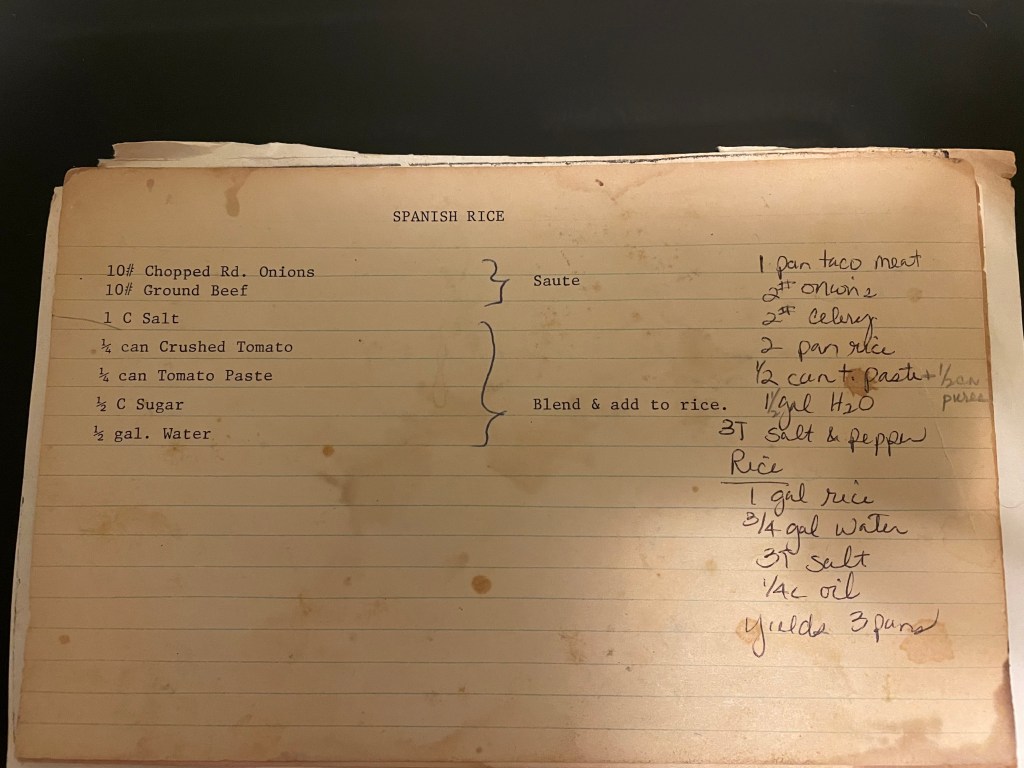 SPANISH RICE
10# Chopped Rd. Onions
10# Ground Beef
Saute
1 C Salt
¼ can Crushed Tomato
¼ can Tomato Paste
½ C Sugar
½ gal. Water
Blend & add to rice.
1 pan taco meat
2# onions
2# celery
2 pan rice
1/2 can t. paste + 1/2 can
puree
1½ gal H2O
3T salt & pepper
Rice
1 gal rice
3/4 gal water
3T salt
1/4c oil
yields 3 pans